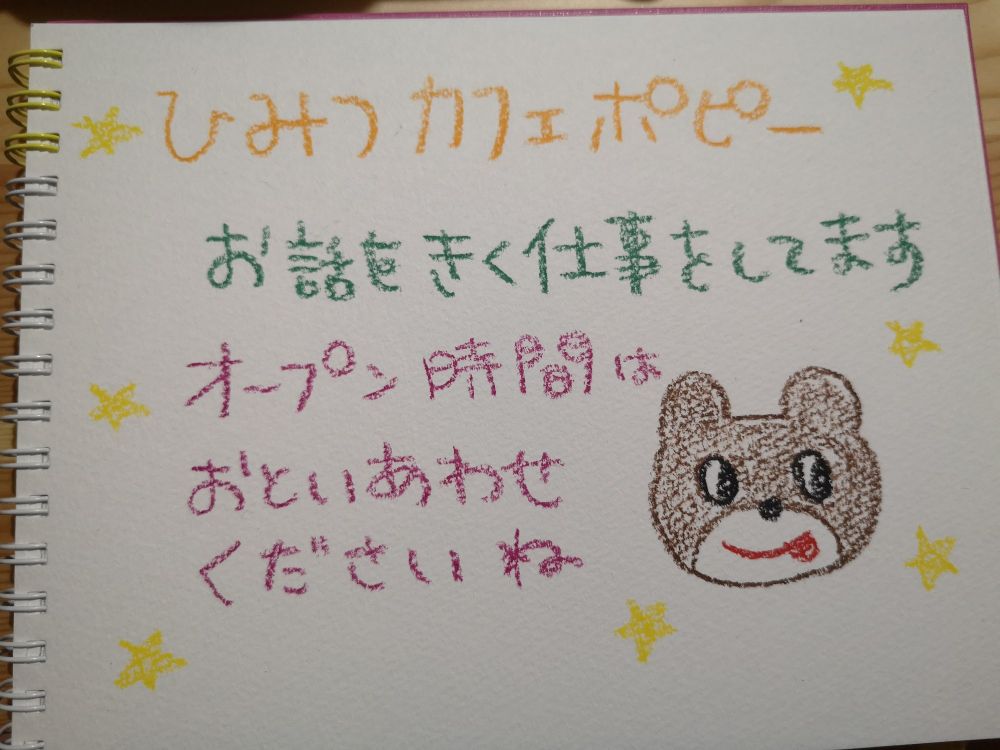 ひみつカフェポピー
お話をきく仕事をしてます
オープン時間は
おといあわせ
くださいね